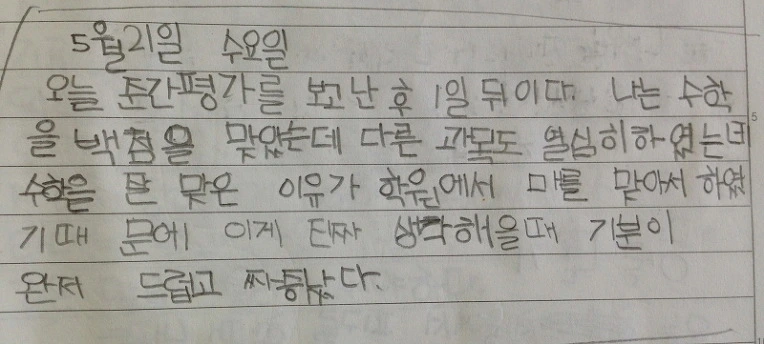 5월21일 수요일
오늘 준간평가를 보고 난 후 1일 뒤이다. 나는 수학
을 백점을 맞았는데 다른 과목도 열심히 하였는데
수학을 잘 맞은 이유가 학원에서 매를 맞아서 하였
기 때 문에 이게 진짜 생각해을때 기분이
완저 드럽고 짜증났다.